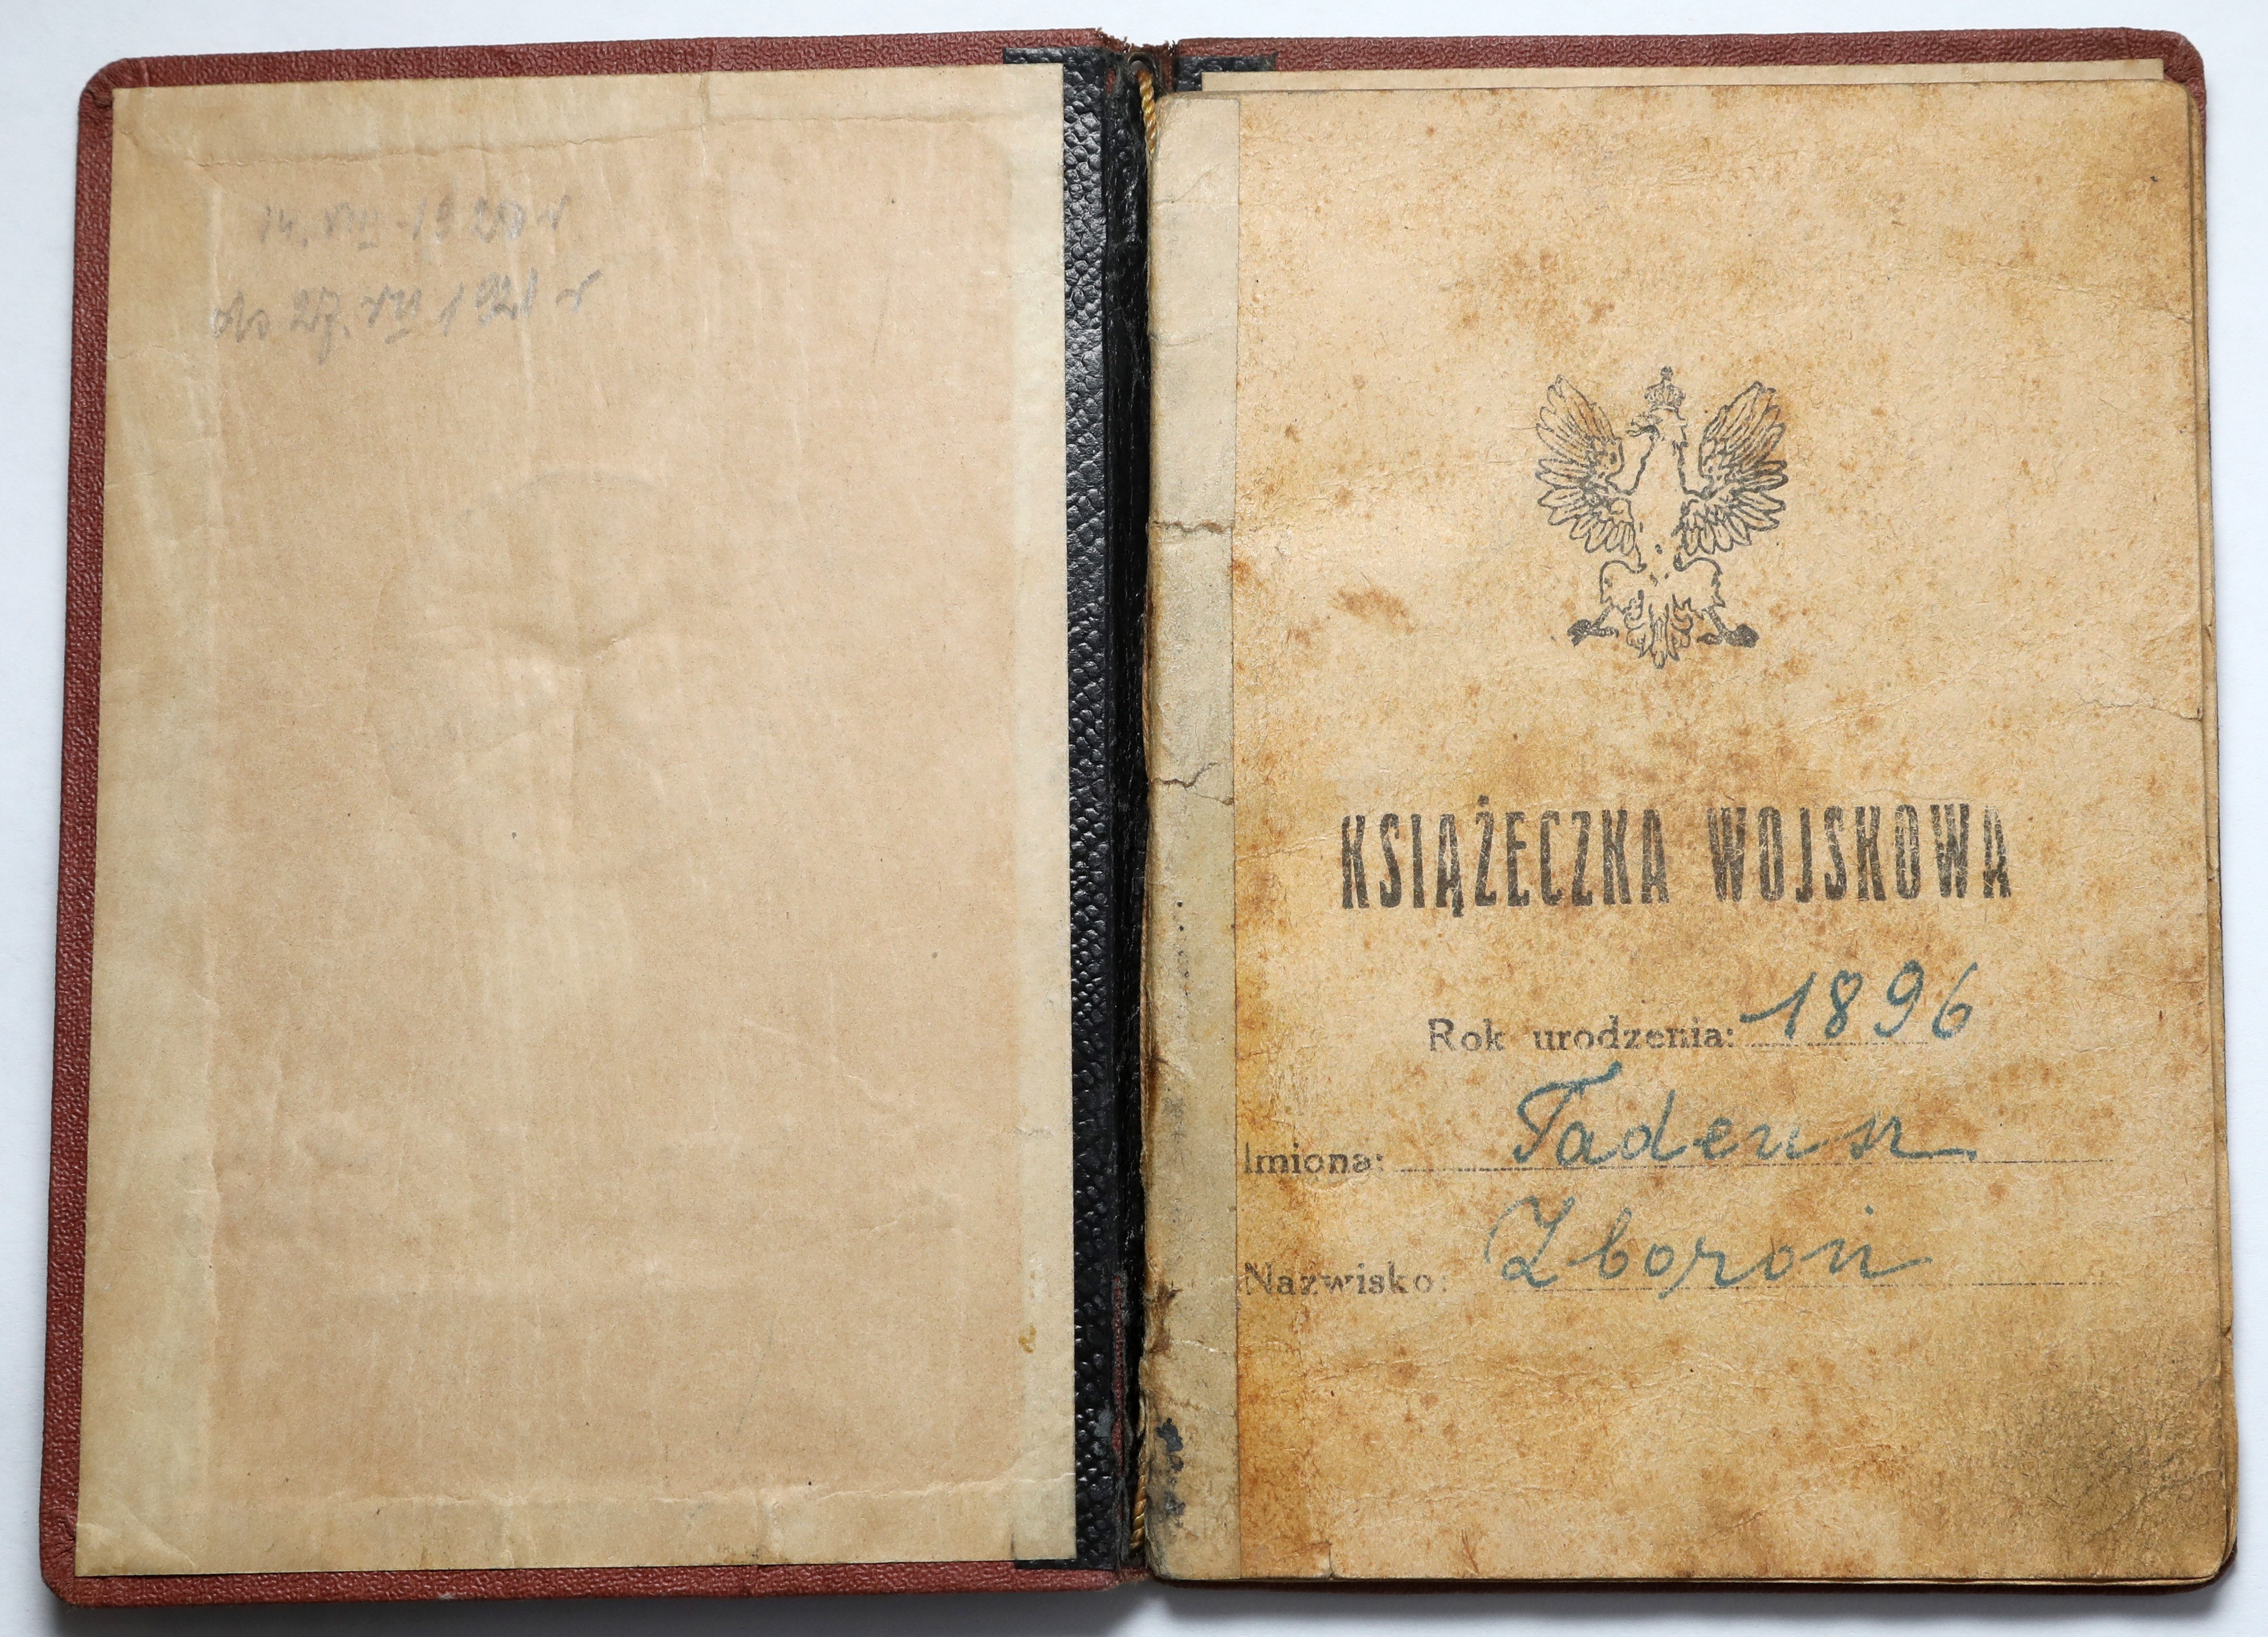 14. VIII 1920 r
do 27. VII 1921 r
KSIĄŻECZKA WOJSKOWA
Rok urodzenia: 1896
Imiona: Tadeusz
Nazwisko: Zboroń